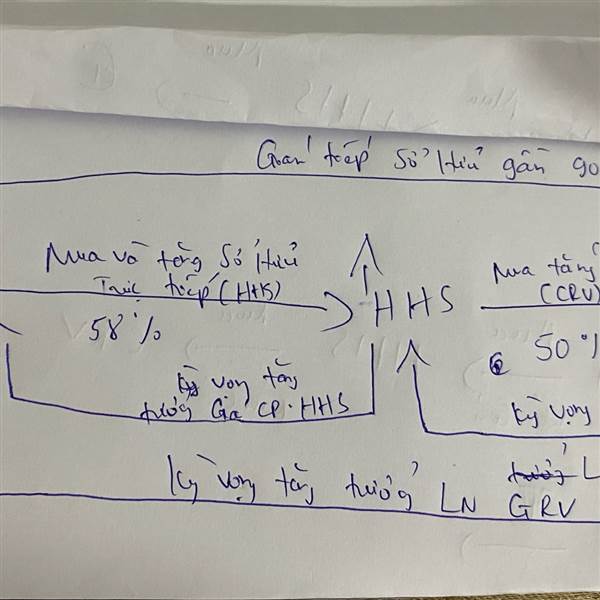 Gián tiếp Sở Hữu gần 90
Mua và tăng Sở Hữu
Trực tiếp (HHS)
58%
HHS
Mua tăng
(CRV)
50%
Kỳ vọng tăng
trưởng Giá CP. HHS
Kỳ vọng
Kỳ vọng tăng trưởng LN GRV